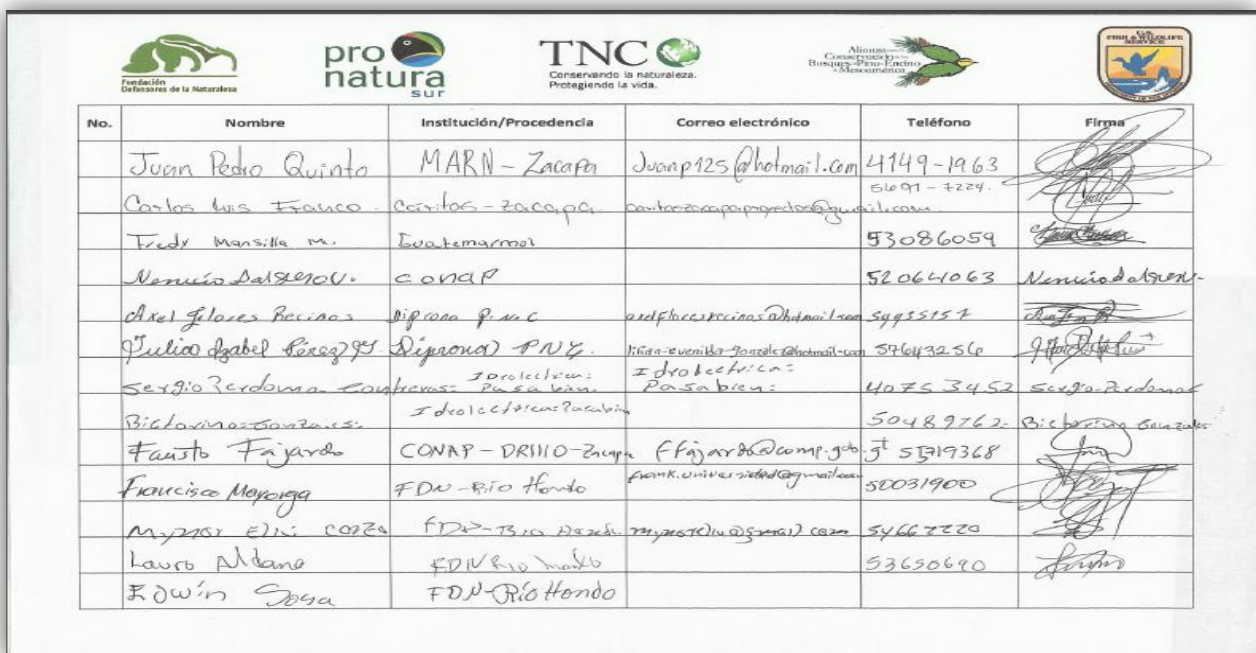 Fundación
Defensores de la Naturaleza
pro
natura
sur
TNC
Conservando la naturaleza.
Protegiendo la vida.
Alianza para la
Conservación de los
Bosques de Pino-Encino
de Mesoamérica
U.S.
FISH & WILDLIFE
SERVICE
No. Nombre Institución/Procedencia Correo electrónico Teléfono Firma
Juan Pedro Quinto MARN - Zacapa Juanp125@hotmail.com 4149-1963
Carlos Luis Franco. Caritas - Zacapa. caritaszacapaproyectos@gmail.com. 5691-7224.
Fredy Mansilla M. Guatemarmol 53086059
conap 52064063
Axel Flores Recinos Diprona P.N.C axelfloresrecinos@hotmail.com 59935157
Pérez Diprona PNC. 57643256
Sergio Perdomo Contreras: Idrolectrica: Pasabien. Idrolectrica: Pasabien: 40753452 Sergio Perdomo
Bictorino: Gonzales: Idrolectrica: Pasabien 50489762. Bictorino Gonzales
Fausto Fajardo CONAP - Zacapa ffajardo@conap.gob.gt 55719368
Francisco Mayorga FDN - Río Hondo frank.universidad@gmail.com 50031900
54667220
Lauro Aldana FDN Rio Hondo 53650690
Edwin Sosa FDN - Río Hondo